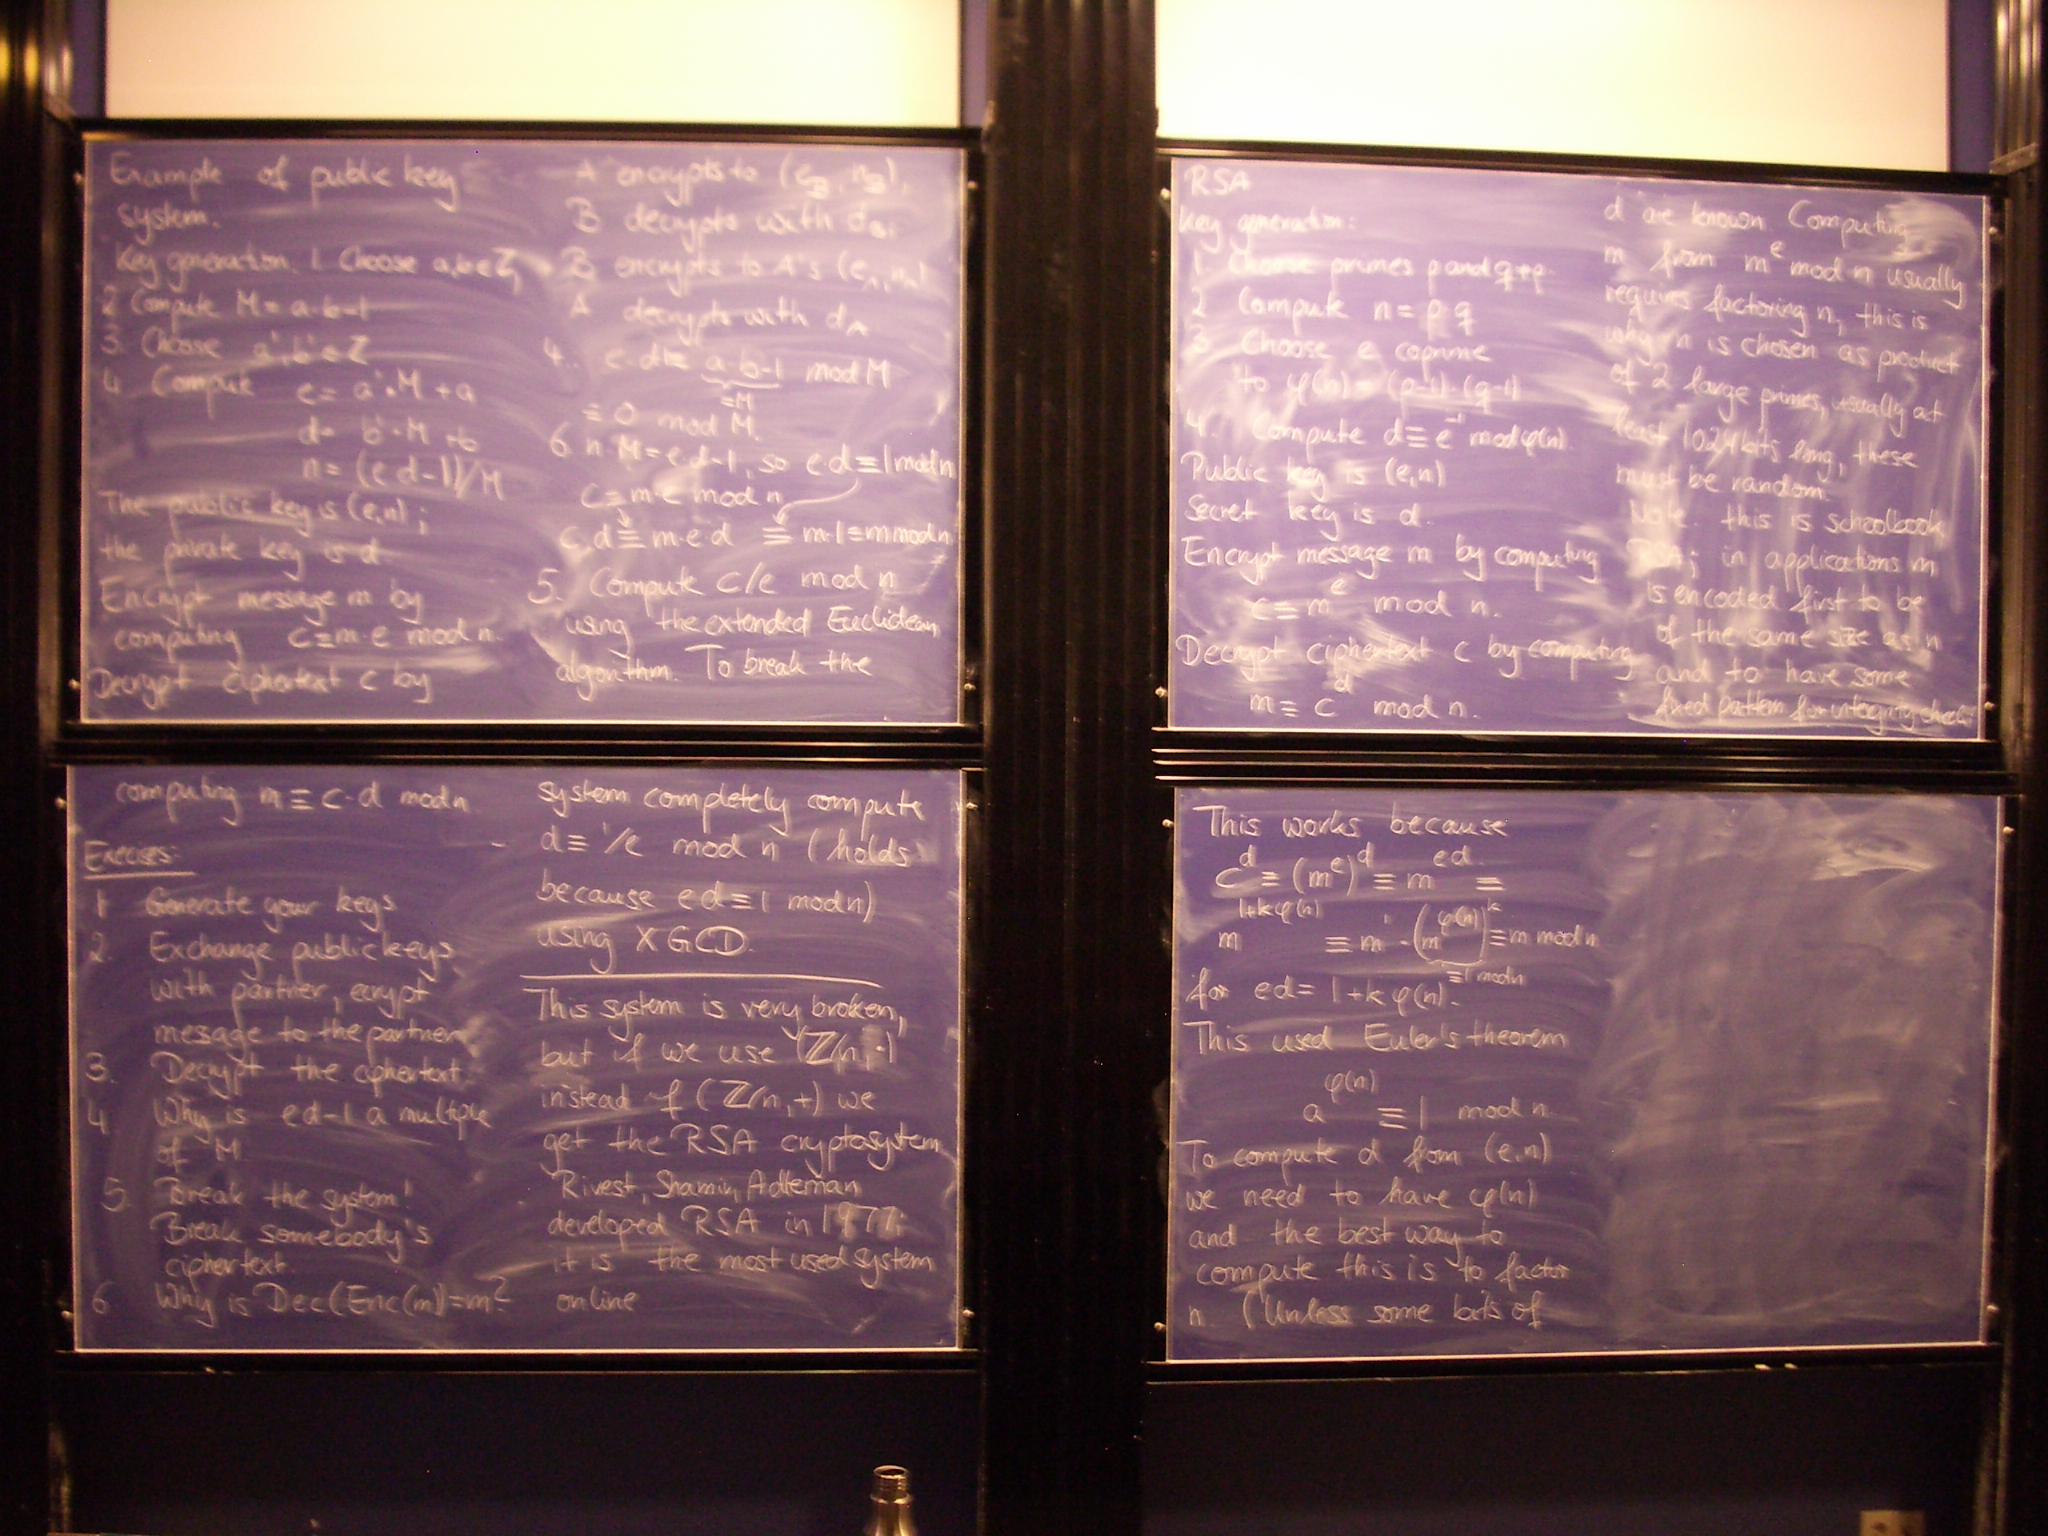 Example of public key
system.
Key generation. 1 Choose a,b∈Z
2 Compute M = a·b-1
3. Choose a',b'∈Z
4. Compute e = a'·M + a
d = b'·M + b
n = (e·d-1)/M
The public key is (e,n);
the private key is d.
Encrypt message m by
computing c≡m·e mod n.
Decrypt ciphertext c by
computing m≡c·d mod n
Exercises:
1 Generate your keys
2. Exchange public keys
with partner, ecrypt
message to the partner
3. Decrypt the ciphertext.
4 Why is ed-1 a multiple
of M
5. Break the system!
Break somebody's
ciphertext.
6 Why is Dec(Enc(m))=m?
A encrypts to (e_B, n_B),
B decrypts with d_B;
B encrypts to A's (e_A, n_A)
A decrypts with d_A
4. e·d≡ a·b-1 mod M
=M
≡ 0 mod M.
6. n·M = e·d-1, so e·d≡1 mod n
c≡m·e mod n
c·d≡m·e·d ≡ m·1=m mod n
5. Compute c/e mod n
using the extended Euclidean
algorithm. To break the
system completely compute
d≡1/e mod n (holds
because ed≡1 mod n)
using XGCD.
This system is very broken,
but if we use (Z/n,·)
instead of (Z/n,+) we
get the RSA cryptosystem
Rivest, Shamir, Adleman
developed RSA in 1977;
it is the most used system
online
RSA
Key generation:
1. Choose primes p and q≠p.
2 Compute n = p·q
3 Choose e coprime
to φ(n) = (p-1)·(q-1)
4. Compute d≡e^-1 mod φ(n).
Public key is (e,n)
Secret key is d.
Encrypt message m by computing
c≡m^e mod n.
Decrypt ciphertext c by computing
m≡c^d mod n.
This works because
c^d≡(m^e)^d≡m^ed≡
m^1+kφ(n) ≡m^1·(m^φ(n))^k≡m mod n
≡1 mod n
for ed= 1+kφ(n).
This used Euler's theorem
a^φ(n) ≡ 1 mod n.
To compute d from (e,n)
we need to have φ(n)
and the best way to
compute this is to factor
n. (Unless some bits of
d are known. Computing
m from m^e mod n usually
requires factoring n, this is
why n is chosen as product
of 2 large primes, usually at
least 1024 bits long, these
must be random.
Note: this is schoolbook
RSA; in applications m
is encoded first to be
of the same size as n
and to have some
fixed pattern for integrity check